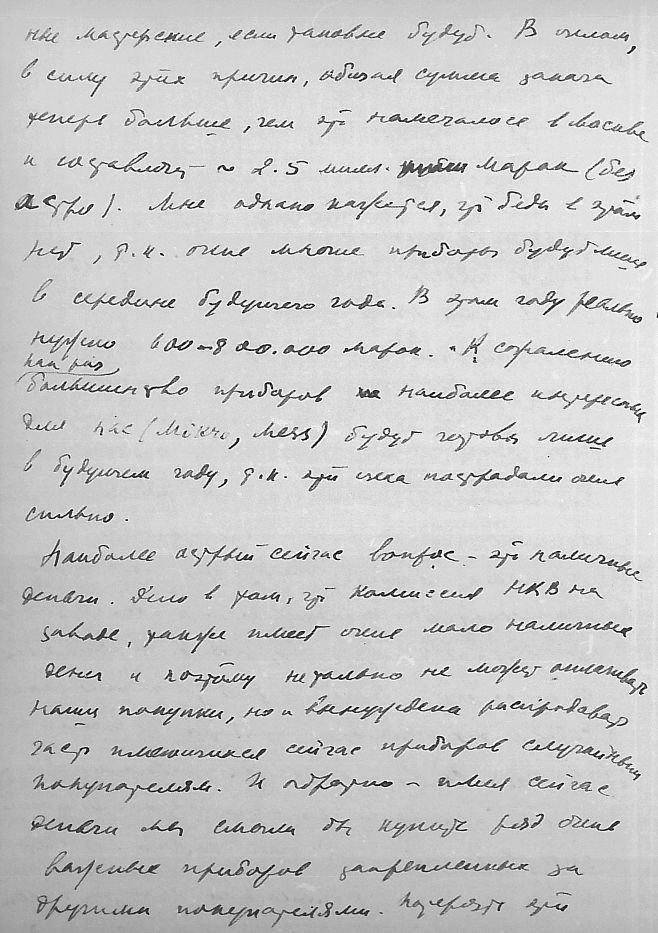 ные мастерские, если таковые будут. В целом,
в силу этих причин, общая сумма заказа
теперь больше, чем это намечалось в Москве
и составляет ~ 2.5 милл. марок (без
астро). Мне однако кажется, что беды в этом
нет, т.к. очень многие приборы будут лишь
в середине будущего года. В этом году реально
нужно 600-800.000 марок. К сожалению
как раз
большинство приборов наиболее интересных
для нас (Mikro, Mess) будут готовы лишь
в будущем году, т.к. эти цеха пострадали очень
сильно.
Наиболее острый сейчас вопрос - это наличные
деньги. Дело в том, что комиссия НКВ на
заводе, также имеет очень мало наличных
денег и поэтому не только не может оплачивать
наши покупки, но и вынуждена распродавать
часть имеющихся сейчас приборов случайным
покупателям. И обратно - имея сейчас
деньги мы смогли бы купить ряд очень
важных приборов закрепленных за
другими покупателями. Потерять эти